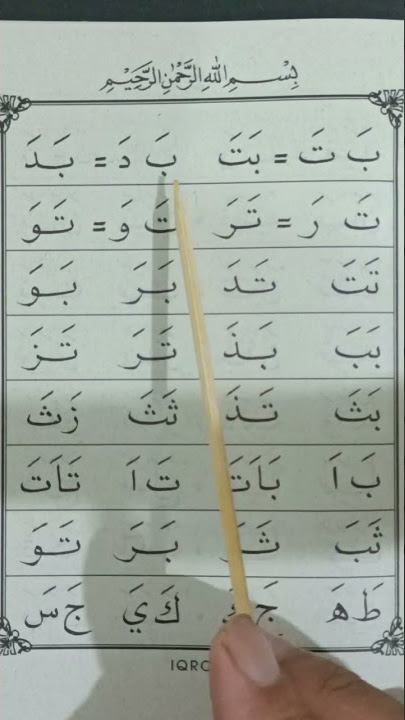 بِسْمِ اللهِ الرَّحْمٰنِ الرَّحِيْمِ
بَ تَ = بَتَ بَ دَ = بَدَ
تَ رَ = تَرَ تَ وَ = تَوَ
تَتَ تَدَ بَرَ بَوَ
بَبَ بَذَ تَرَ تَزَ
بَثَ تَذَ ثَثَ زَثَ
بَ اَ بَاَتَ تَ اَ تَاَتَ
ثَبَ ثَرَ بَرَ تَوَ
طَ هَ جَ كَ يَ جَ سَ